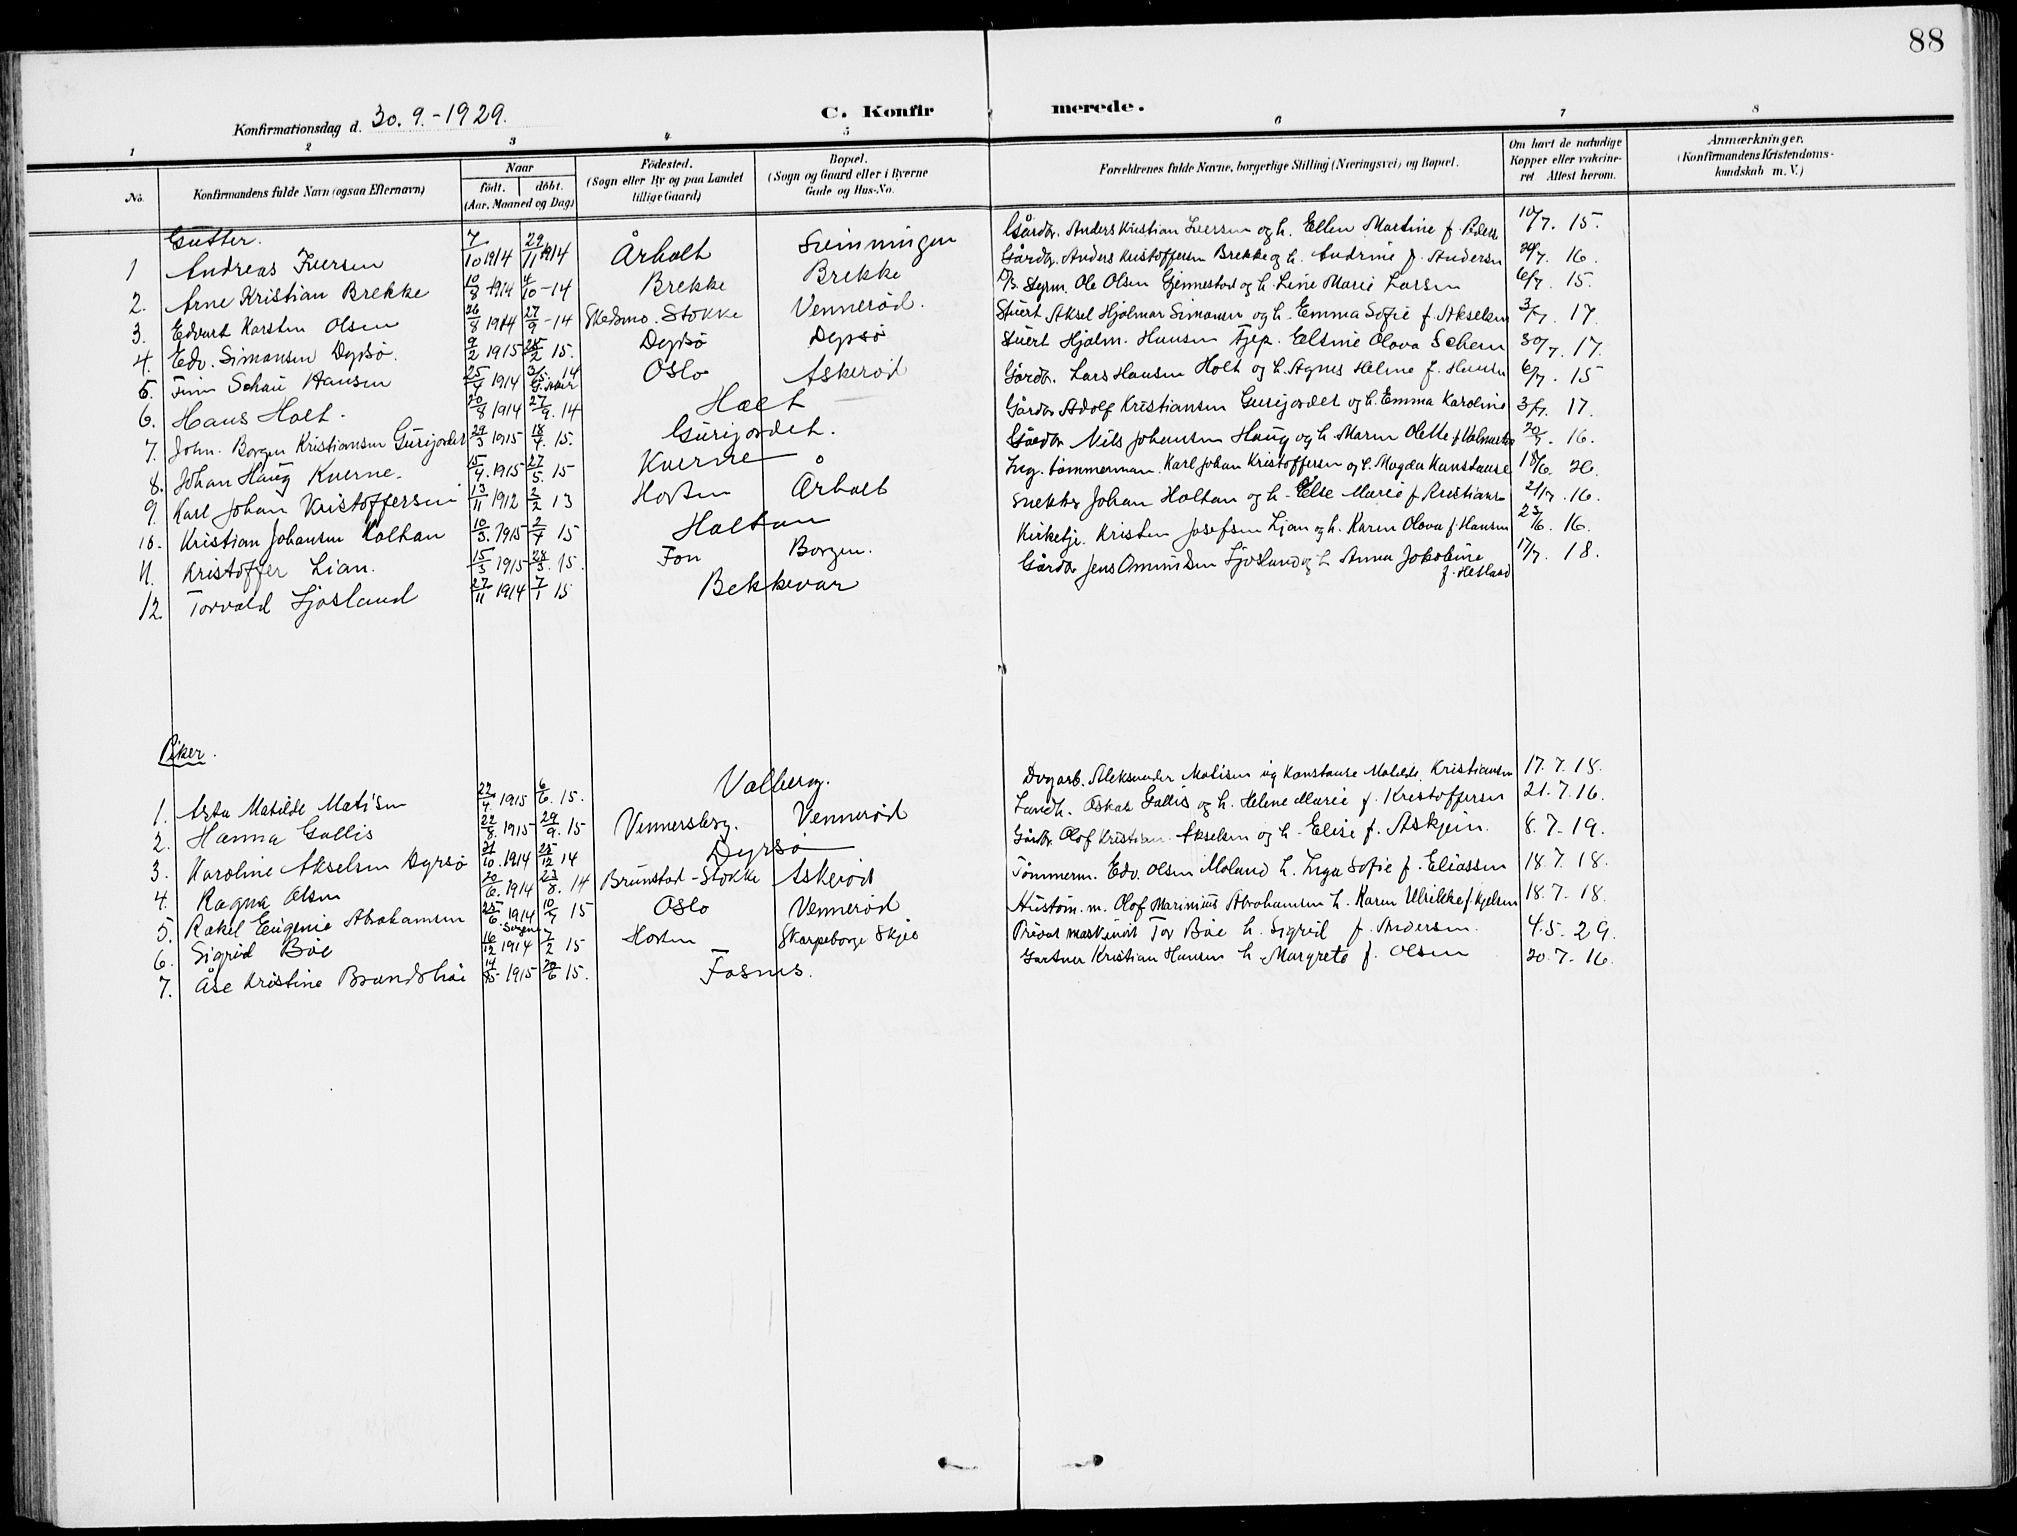 88
Konfirmationsdag d. 30. 9. - 1929.
C. Konfirmerede.
1 2 3 4 5 6 7 8
No. Konfirmandens fulde Navn (ogsaa Efternavn) Naar födt. döbt. (Aar, Maaned og Dag) Födested. (Sogn eller By og paa Landet tillige Gaard) Bopæl. (Sogn og Gaard eller i Byerne Gade og Hus-No. Forældrenes fulde Navne, borgerlige Stilling (Næringsvei) og Bopæl. Om havt de naturlige Kopper eller vakcineret Attest herom. Anmærkninger. (Konfirmandens Kristendomskundskab m. V.)
Gutter.
1 Andreas Iversen 7/10 1914 29/11 1914 Årholt Svinningen Gårdbr. Anders Kristian Iversen og h. Ellen Martine f. 10/7. 15.
2. Arne Kristian Brekke 10/8 - 1914 4/10 - 14 Brekke Brekke Gårdbr. Anders Kristoffersen Brekke og h. Andrine f. Andersen 20/7. 16.
3. Edvart Karsten Olsen 26/8 1914 27/9 - 14 Skedsmo. Stokke Vennerød. Styrm. Ole Olsen Gjennestad og h. Line Marie Larsen 6/7. 15.
4. Edv. Simonsen Dyrsø. 9/2 1915 25/2 15. Dyrsø Dyrsø Stuert Aksel Hjalmar Simonsen og h. Emma Sofie f. Akselsen 3/7. 17.
5. Finn Schau Hansen 25/4 1914 3/5. 14 Oslo Askerød Stuert Hjalm. Hansen Elsine Olava Schau 30/7. 17.
6. Hans Holt. 20/8 1914 27/9. 14 Holt Gårdbr. Lars Hansen Holt og h. Agnes Helene f. Hansen 6/7. 15
7. John. Borgen Kristiansen Gurijordet 29/3 1915 18/4. 15. Gurijordet. Gårdbr. Adolf Kristiansen Gurijordet og h. Emma Karoline 3/7. 17.
8. Johan Haug Kverne. 15/4. 1915 27/5 15 Kverne Gårdbr. Nils Johansen Haug og h. Maren Olette f. 20/7. 16.
9. Karl Johan Kristoffersen 13/11 1912 2/2 13 Horten Årholt tømmermann. Karl Johan Kristoffersen og h. Magda Konstanse 18/6. 26.
10. Kristian Johansen Holtan 10/3. 1915 2/4 15 Holtan Snekker Johan Holtan og h. Else Marie f. Kristians 21/7. 16.
11. Kristoffer Lian. 15/3 1915 28/3. 15. Fon Borgen. Kirketj. Kristen Josefsen Lian og h. Karen Olava f. Hansen 23/6. 16.
12. Torvald Ljosland 27/11 1914 7/1 15 Bekkevar Gårdbr Jens Omundsen Ljosland og h. Anna Jakobine f. Hetland 17/7. 18.
Piker.
1. Asta Matilde Matisen 22/4. 1915 6/6. 15. Valberg. Dagarb. Aleksander Matisen og Konstanse Matilde Kristiansen 17. 7. 18.
2. Hanna Gallis 22/8. 1915 29/9. 15 Vennersberg. Vennerød Landh. Oskar Gallis og h. Helene Marie f. Kristoffersen 21. 7. 16.
3. Karoline Akselsen Dyrsø 21/10. 1914 25/12 14 Dyrsø Gårdbr. Olof Kristian Akselsen og h. Elise f. Askjein. 8. 7. 19.
4. Ragna Olsen 20/6. 1914 23/8. 14 Brunstad - Stokke Askerød Tømmerm. Edv. Olsen Moland h. Inga Sofie f. Eliassen 18. 7. 18.
5. Rakel Eugenie Abrahamsen 25/6. 1914 10/4 15 Oslo Vennerød Hustøm. m. Olof Marinius Abrahamsen h. Karen Ulrikke f. Kjelsen 18. 7. 18.
6. Sigrid Bøe 16/12 1914 7/2 15 Horten Skarpeborge Skjee Privat maskinist Tor Bøe h. Sigrid f. Andersen. 4. 5. 29.
7. Åse Kristine Brandshøi 14/5 - 1915 20/6 15. Fosnes. Gartner Kristian Hansen h. Margrete f. Olsen 20. 7 - 16.